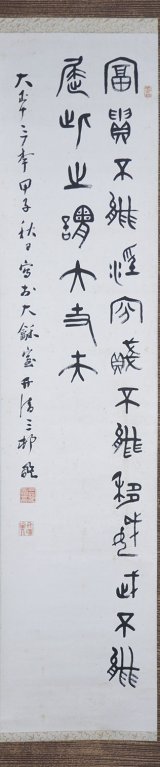 富貴不能淫貧賤不能移威武不能
屈此之謂大丈夫
大正十三年甲子秋日寫於大龢